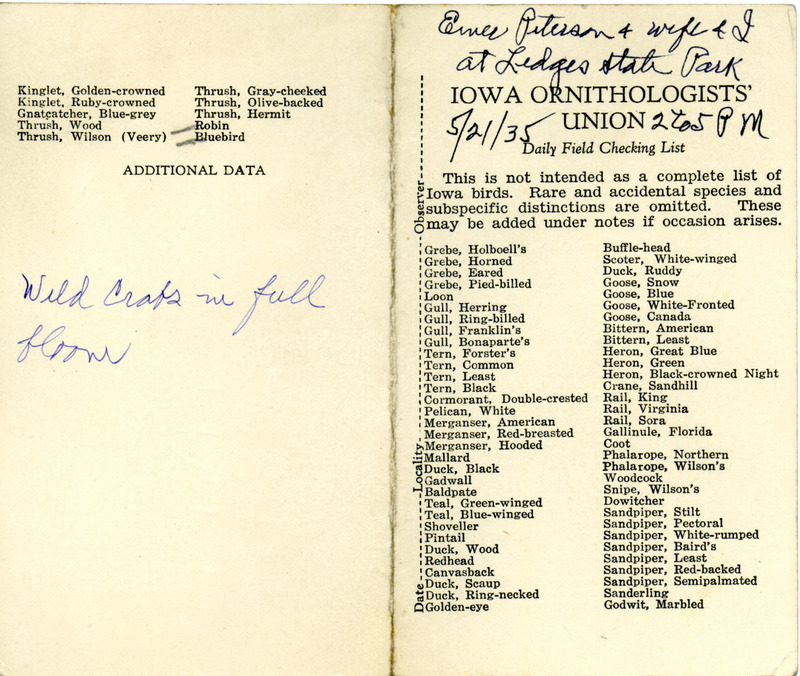 Kinglet, Golden-crowned
Kinglet, Ruby-crowned
Gnatcatcher, Blue-grey
Thrush, Wood
Thrush, Wilson (Veery)
Thrush, Gray-cheeked
Thrush, Olive-backed
Thrush, Hermit
Robin
Bluebird
ADDITIONAL DATA
Wild Crabs in full
bloom
Peterson & wife & I
at Ledges State Park
IOWA ORNITHOLOGISTS'
5/21/35 UNION 2 to 5 P M
Daily Field Checking List
This is not intended as a complete list of
Iowa birds. Rare and accidental species and
subspecific distinctions are omitted. These
may be added under notes if occasion arises.
Date Locality Observer
Grebe, Holboell's
Grebe, Horned
Grebe, Eared
Grebe, Pied-billed
Loon
Gull, Herring
Gull, Ring-billed
Gull, Franklin's
Gull, Bonaparte's
Tern, Forster's
Tern, Common
Tern, Least
Tern, Black
Cormorant, Double-crested
Pelican, White
Merganser, American
Merganser, Red-breasted
Merganser, Hooded
Mallard
Duck, Black
Gadwall
Baldpate
Teal, Green-winged
Teal, Blue-winged
Shoveller
Pintail
Duck, Wood
Redhead
Canvasback
Duck, Scaup
Duck, Ring-necked
Golden-eye
Buffle-head
Scoter, White-winged
Duck, Ruddy
Goose, Snow
Goose, Blue
Goose, White-Fronted
Goose, Canada
Bittern, American
Bittern, Least
Heron, Great Blue
Heron, Green
Heron, Black-crowned Night
Crane, Sandhill
Rail, King
Rail, Virginia
Rail, Sora
Gallinule, Florida
Coot
Phalarope, Northern
Phalarope, Wilson's
Woodcock
Snipe, Wilson's
Dowitcher
Sandpiper, Stilt
Sandpiper, Pectoral
Sandpiper, White-rumped
Sandpiper, Baird's
Sandpiper, Least
Sandpiper, Red-backed
Sandpiper, Semipalmated
Sanderling
Godwit, Marbled